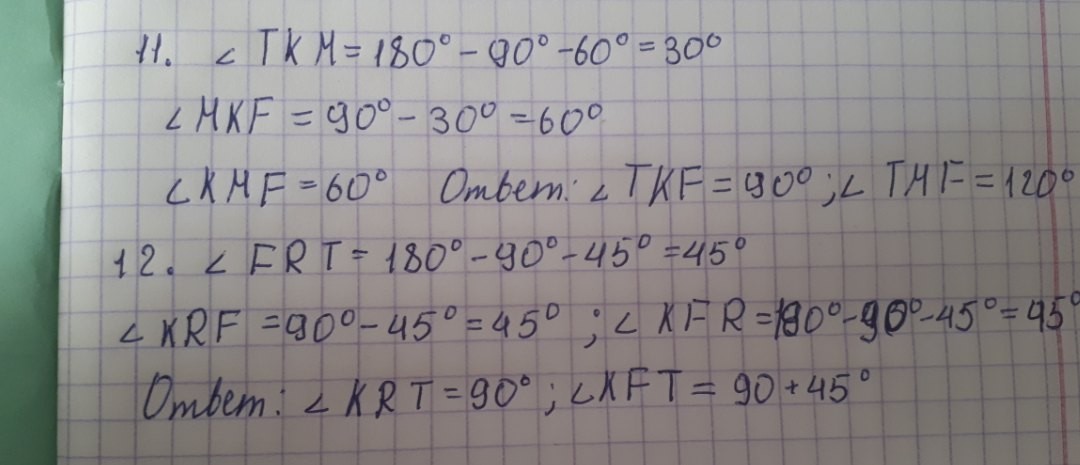 11. ∠ TKM = 180° - 90° - 60° = 30°
∠ MKF = 90° - 30° = 60°
∠ KMF = 60° Ответ: ∠ TKF = 90° ; ∠ TMF = 120°
12. ∠ FRT = 180° - 90° - 45° = 45°
∠ KRF = 90° - 45° = 45° ; ∠ KFR = 180° - 90° - 45° = 45°
Ответ: ∠ KRT = 90° ; ∠ KFT = 90 + 45°